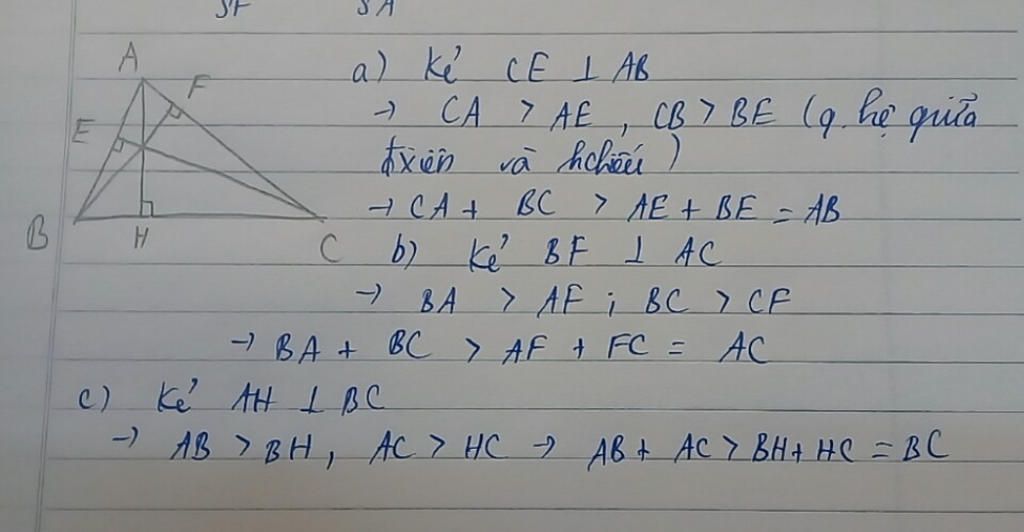 SF SA
A
F
E
B
H
C
a) Kẻ CE ⊥ AB
→ CA > AE , CB > BE (q. hệ giữa
đxiên và hchiếu)
→ CA + BC > AE + BE = AB
b) Kẻ BF ⊥ AC
→ BA > AF ; BC > CF
→ BA + BC > AF + FC = AC
c) Kẻ AH ⊥ BC
→ AB > BH, AC > HC → AB + AC > BH + HC = BC